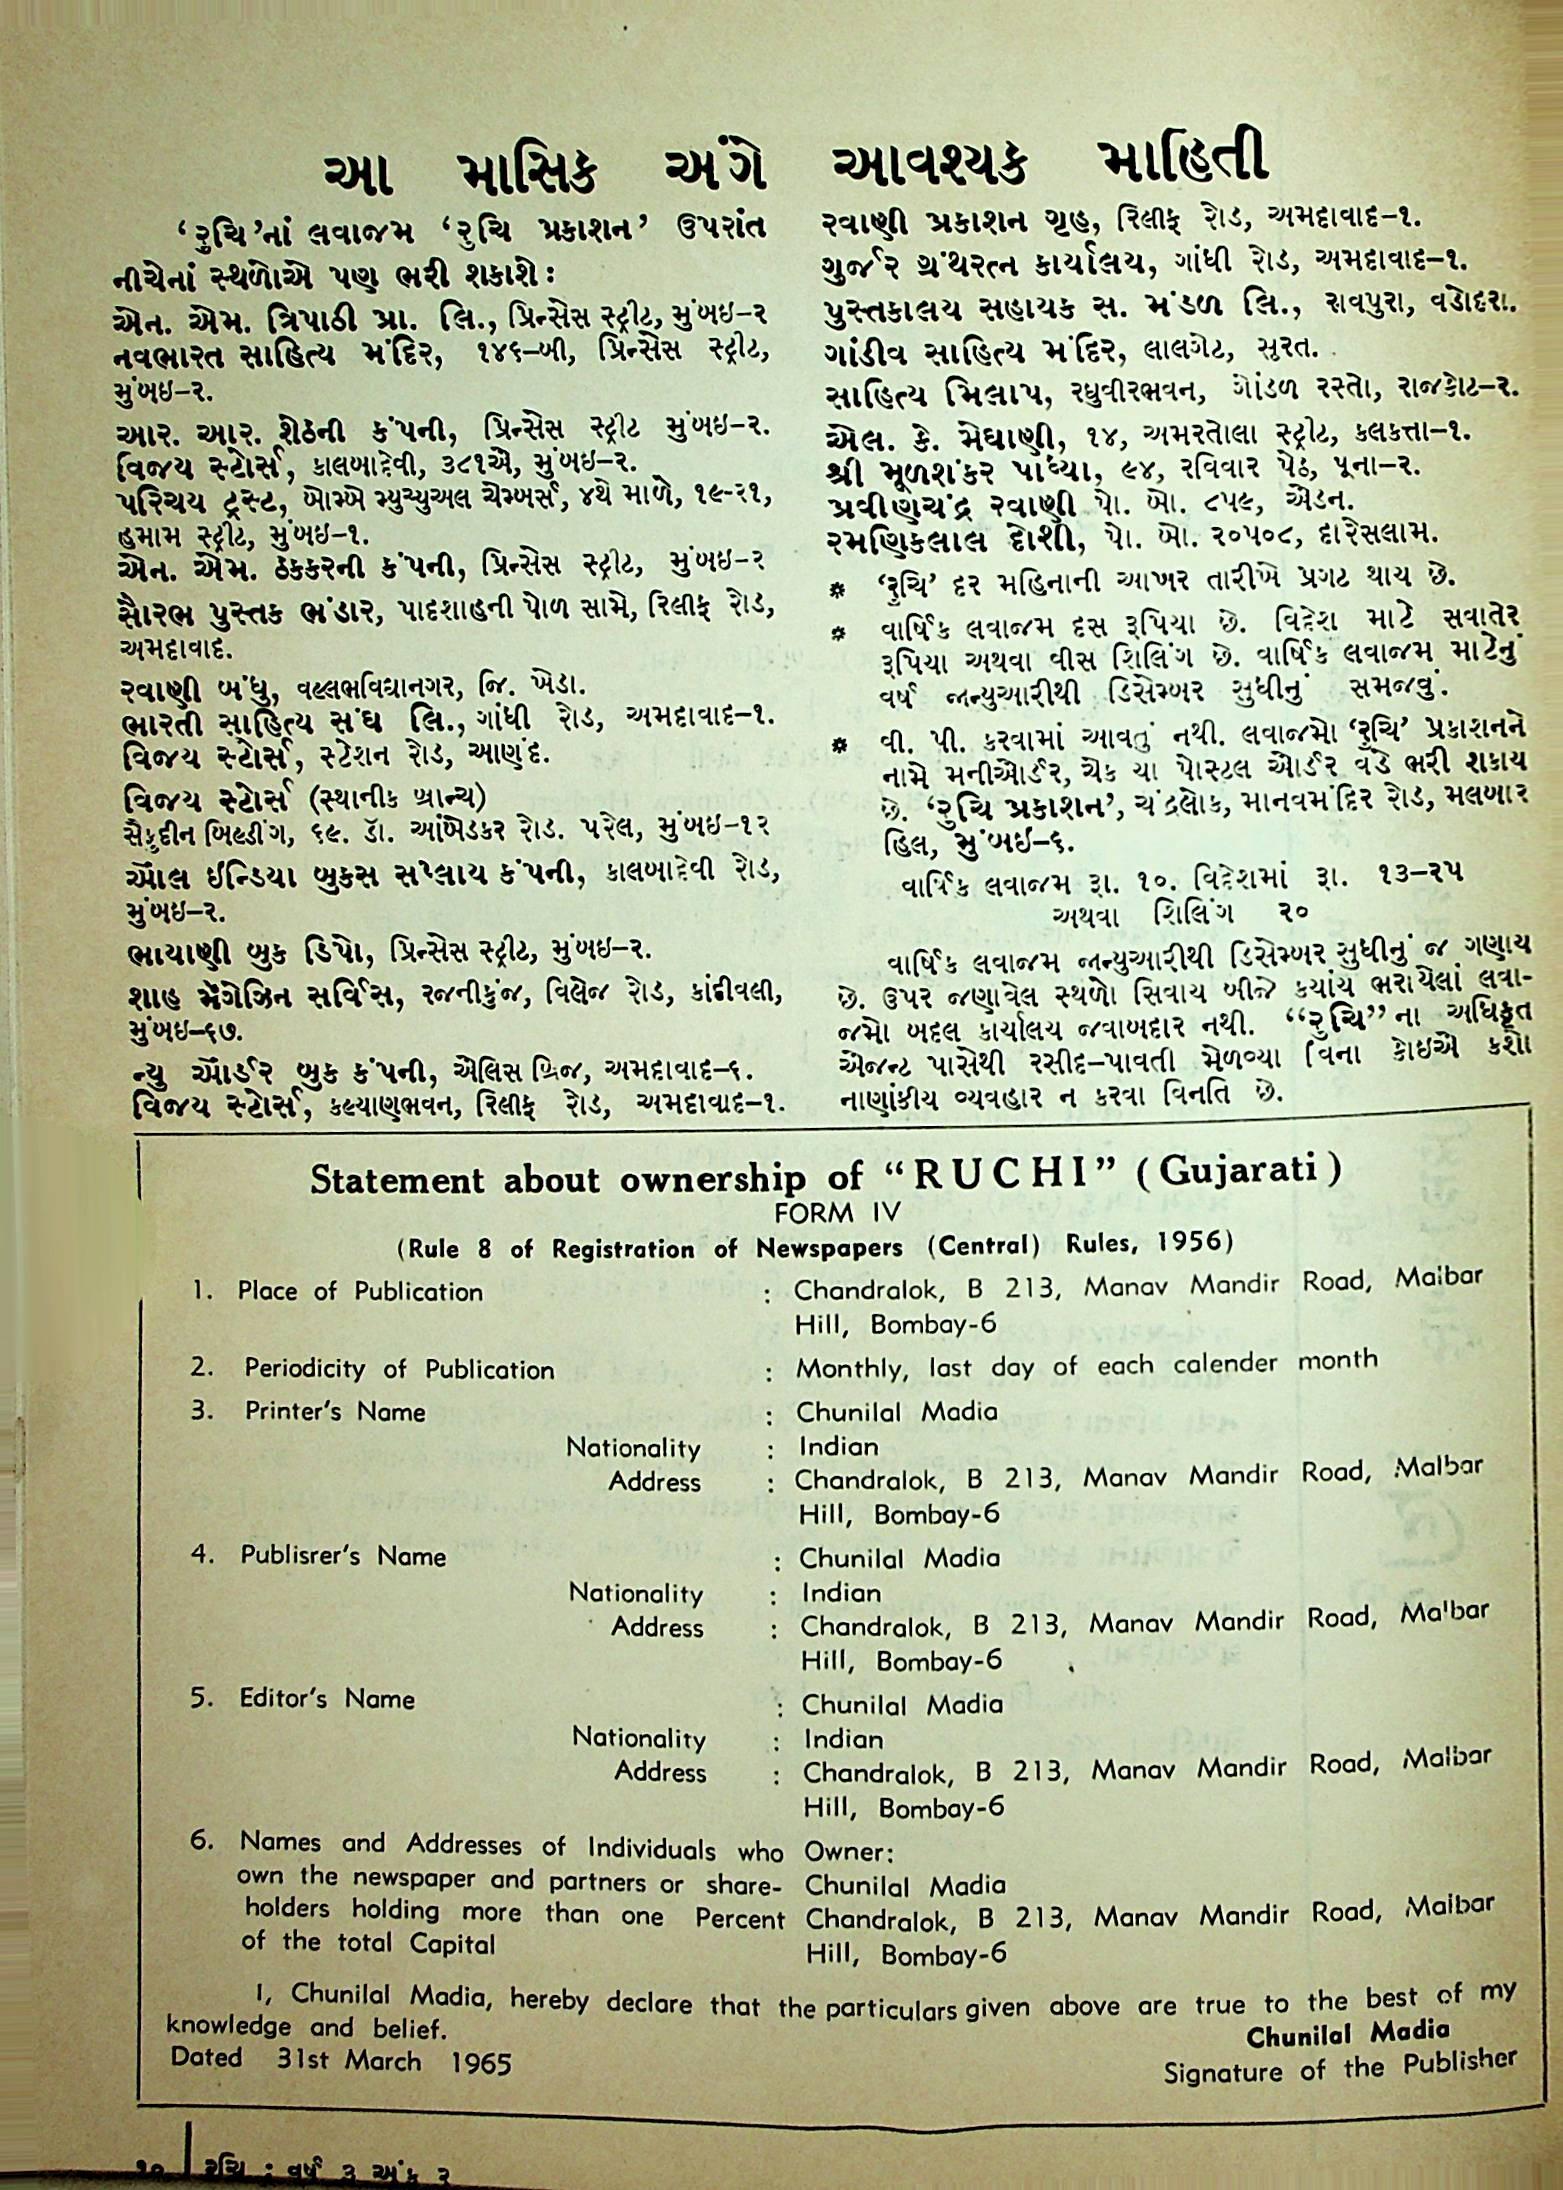 આ માસિક અંગે આવશ્યક માહિતી
‘રુચિ’નાં લવાજમ ‘રુચિ પ્રકાશન’ ઉપરાંત
નીચેનાં સ્થળોએ પણ ભરી શકાશે :
એન. એમ. ત્રિપાઠી પ્રા. લિ., પ્રિન્સેસ સ્ટ્રીટ, મુંબઇ–૨
નવભારત સાહિત્ય મંદિર, ૧૪૬–બી, પ્રિન્સેસ સ્ટ્રીટ,
મુંબઇ–૨.
આર. આર. શેઠની કંપની, પ્રિન્સેસ સ્ટ્રીટ મુંબઇ–૨.
વિજય સ્ટોર્સ, કાલબાદેવી, ૩૮૧એ, મુંબઇ–૨.
પરિચય ટ્રસ્ટ, બોમ્બે મ્યુચ્યુઅલ ચેમ્બર્સ, ૪થે માળે, ૧૯-૨૧,
હમામ સ્ટ્રીટ, મુંબઇ–૧.
એન. એમ. ઠક્કરની કંપની, પ્રિન્સેસ સ્ટ્રીટ, મુંબઇ–૨
સૌરભ પુસ્તક ભંડાર, પાદશાહની પોળ સામે, રિલીફ રોડ,
અમદાવાદ.
રવાણી બંધુ, વલ્લભવિદ્યાનગર, જિ. ખેડા.
ભારતી સાહિત્ય સંઘ લિ., ગાંધી રોડ, અમદાવાદ–૧.
વિજય સ્ટોર્સ, સ્ટેશન રોડ, આણંદ.
વિજય સ્ટોર્સ (સ્થાનીક બ્રાન્ચ)
સૈફુદીન બિલ્ડીંગ, ૬૯. ડૉ. આંબેડકર રોડ. પરેલ, મુંબઇ–૧૨
ઑલ ઈન્ડિયા બુકસ સપ્લાય કંપની, કાલબાદેવી રોડ,
મુંબઇ–૨.
ભાયાણી બુક ડિપો, પ્રિન્સેસ સ્ટ્રીટ, મુંબઇ–૨.
શાહ મૅગેઝિન સર્વિસ, રજનીકુંજ, વિલેજ રોડ, કાંદીવલી,
મુંબઇ–૬૭.
ન્યુ ઑર્ડર બુક કંપની, એલિસ બ્રિજ, અમદાવાદ–૬.
વિજય સ્ટોર્સ, કલ્યાણભવન, રિલીફ રોડ, અમદાવાદ–૧.
રવાણી પ્રકાશન ગૃહ, રિલીફ રોડ, અમદાવાદ–૧.
ગુર્જર ગ્રંથરત્ન કાર્યાલય, ગાંધી રોડ, અમદાવાદ–૧.
પુસ્તકાલય સહાયક સ. મંડળ લિ., રાવપુરા, વડોદરા.
ગાંડીવ સાહિત્ય મંદિર, લાલગેટ, સુરત.
સાહિત્ય મિલાપ, રઘુવીરભવન, ગોંડળ રસ્તો, રાજકોટ–૨.
એલ. કે. મેઘાણી, ૧૪, અમરતોલા સ્ટ્રીટ, કલકત્તા–૧.
શ્રી મૂળશંકર પંધ્યા, ૯૪, રવિવાર પેઠ, પૂના–૨.
પ્રવીણચંદ્ર રવાણી પો. બો. ૮૫૯, એડન.
રમણિકલાલ દોશી, પો. બો. ૨૦૫૦૮, દારેસલામ.
* ‘રૂચિ’ દર મહિનાની આખર તારીખે પ્રગટ થાય છે.
* વાર્ષિક લવાજમ દસ રૂપિયા છે. વિદેશ માટે સવાતેર
રૂપિયા અથવા વીસ શિલિંગ છે. વાર્ષિક લવાજમ માટેનું
વર્ષ જાન્યુઆરીથી ડિસેમ્બર સુધીનું સમજવું.
* વી. પી. કરવામાં આવતું નથી. લવાજમો ‘રૂચિ’ પ્રકાશનને
નામે મનીઓર્ડર, ચેક યા પોસ્ટલ ઓર્ડર વડે ભરી શકાય
છે. ‘રુચિ પ્રકાશન’, ચંદ્રલોક, માનવમંદિર રોડ, મલબાર
હિલ, મુંબઇ–૬.
વાર્ષિક લવાજમ રૂા. ૧૦. વિદેશમાં રૂા. ૧૩–૨૫
અથવા શિલિંગ ૨૦
વાર્ષિક લવાજમ જાન્યુઆરીથી ડિસેમ્બર સુધીનું જ ગણાય
છે. ઉપર જણાવેલ સ્થળો સિવાય બીજે કયાંય ભરાયેલાં લવા-
જમો બદલ કાર્યાલય જવાબદાર નથી. “રુચિ”ના અધિકૃત
એજન્ટ પાસેથી રસીદ–પાવતી મેળવ્યા વિના કોઇએ કશો
નાણાંકીય વ્યવહાર ન કરવા વિનતિ છે.
Statement about ownership of “RUCHI” (Gujarati)
FORM IV
(Rule 8 of Registration of Newspapers (Central) Rules, 1956)
1. Place of Publication : Chandralok, B 213, Manav Mandir Road, Malbar
Hill, Bombay-6
2. Periodicity of Publication : Monthly, last day of each calender month
3. Printer's Name : Chunilal Madia
Nationality : Indian
Address : Chandralok, B 213, Manav Mandir Road, Malbar
Hill, Bombay-6
4. Publisrer's Name : Chunilal Madia
Nationality : Indian
Address : Chandralok, B 213, Manav Mandir Road, Malbar
Hill, Bombay-6
5. Editor's Name : Chunilal Madia
Nationality : Indian
Address : Chandralok, B 213, Manav Mandir Road, Malbar
Hill, Bombay-6
6. Names and Addresses of Individuals who Owner:
own the newspaper and partners or share- Chunilal Madia
holders holding more than one Percent Chandralok, B 213, Manav Mandir Road, Malbar
of the total Capital Hill, Bombay-6
I, Chunilal Madia, hereby declare that the particulars given above are true to the best of my
knowledge and belief.
Chunilal Madia
Dated 31st March 1965
Signature of the Publisher
રુચિ : વર્ષ ૩ અંક ૨